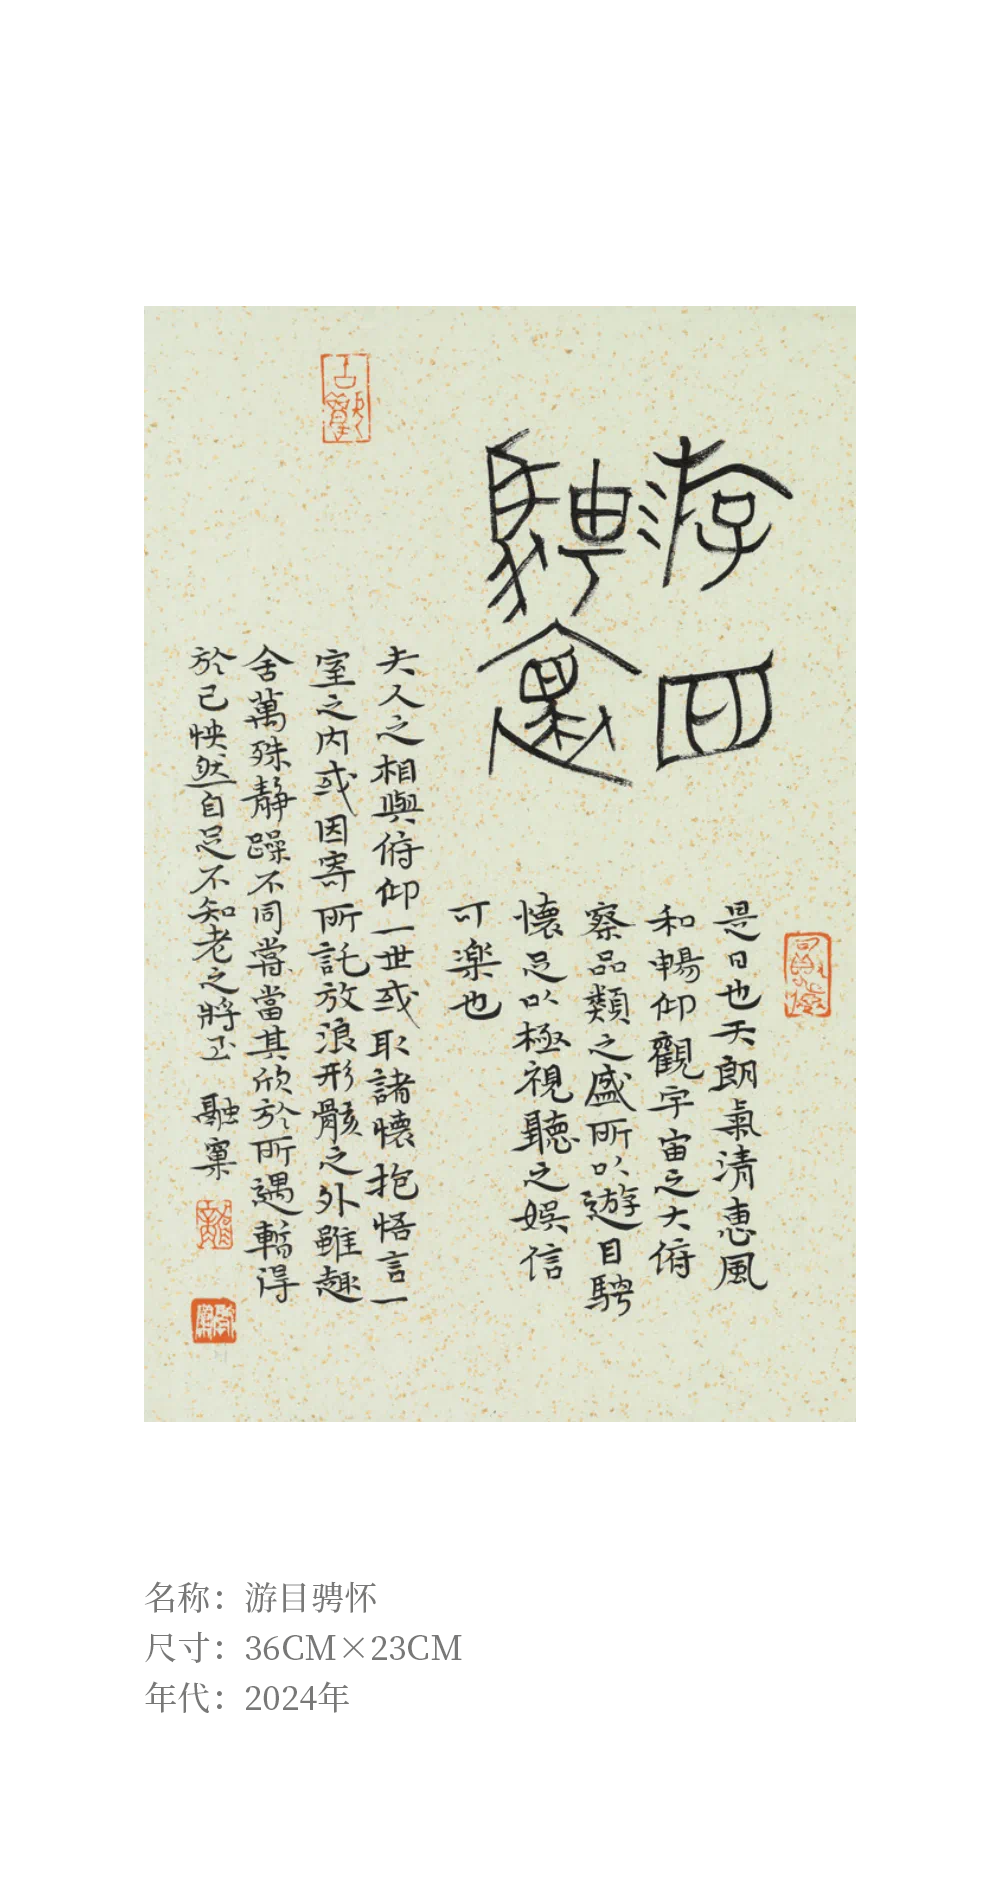 游目
騁懷
是日也天朗氣清惠風
和暢仰觀宇宙之大俯
察品類之盛所以遊目騁
懷足以極視聽之娛信
可楽也
夫人之相與俯仰一世或取諸懷抱悟言一
室之内或因寄所託放浪形骸之外雖趣
舍萬殊靜躁不同當當其欣於所遇暫得
於己怏然自足不知老之將至 融窠
名称：游目骋怀
尺寸：36CM×23CM
年代：2024年